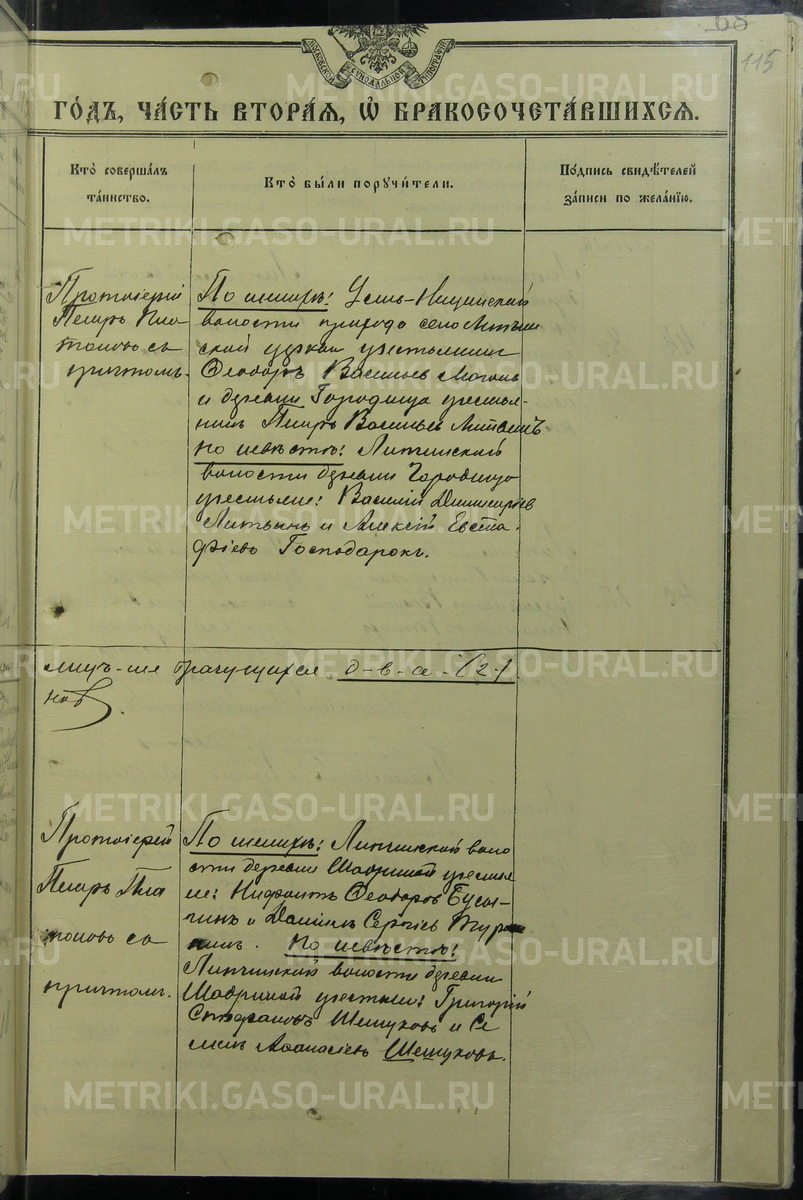 115
МОСКОВСКОЙ СѴНОДАЛЬНОЙ ТИПОГРАФІИ
ГО́ДЪ, ЧА́СТЬ ВТОРА́Ѧ, Ѽ БРАКОСОЧЕТА́ВШИХСѦ.
Кто̀ соверша́лъ
та́инство.
Кто̀ бы́ли порꙋчи́тели.
По́дпись свидѣ́телей
за́писи по жела́нїю.
Протоіерей
Петръ Пла
тоновъ съ
причтомъ.
По жениху: Усть-Ницинской
волости прихода села
ской церкви крестьянин
Ѳеодоръ Васильев
и деревни Городища крестья-
нинъ Петръ Васильев
по невѣстѣ: Липчинской
волости деревни Городища
крестьяне: Василій Димитріев
и Алексій Евста
фіевъ Господарок.
д-в-а-(2-)
новъ.
Протоіерей
Петръ Пла
тоновъ съ
причтомъ.
По женихѣ: Липчинской воло
сти деревни Шавриной крестья
не: Нифонтъ Ѳеодоров Бусы-
гинъ и Даніилъ Сергіев
. По невѣстѣ:
Липчинской волости деревни
Шавриной крестьяне: Григорій
Стефановъ Шешуковъ и Се
менъ Аѳанасіевъ Шешуковъ.
METRIKI.GASO-URAL.RU